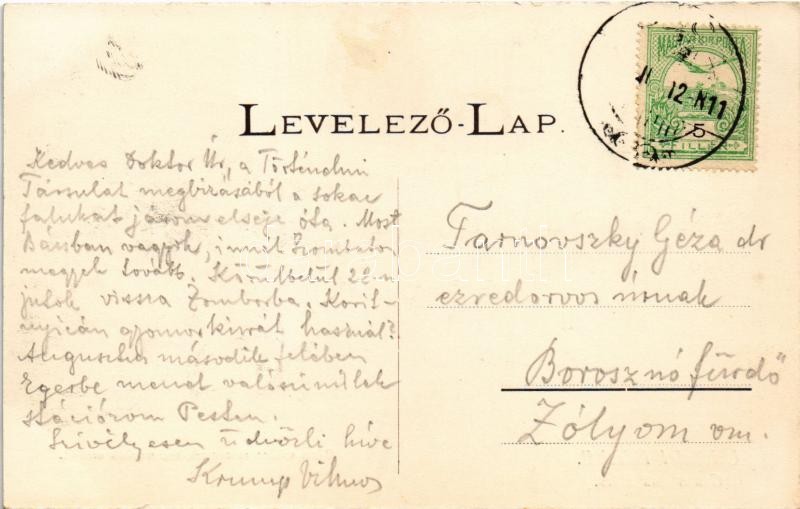 LEVELEZŐ-LAP.
MAGYAR KIR. POSTA
12 N11
5
FILLÉR
Kedves Doktor Úr, a Történelmi
Társulat megbizásából a sokac
falukat járom elseje óta. Most
Bácsban vagyok, innét Szombaton
megyek tovább. Körülbelül 22-n
jutok vissza Zomborba. Korit-
nyicán gyomorkúrát használ?
Augusztus második felében
Egerbe menet valószinűleg
stációzom Pesten.
Szivélyesen üdvözli híve
Krump Vilmos
Tarnovszky Géza dr
ezredorvos úrnak
Borosznó fürdő
Zólyom vm.